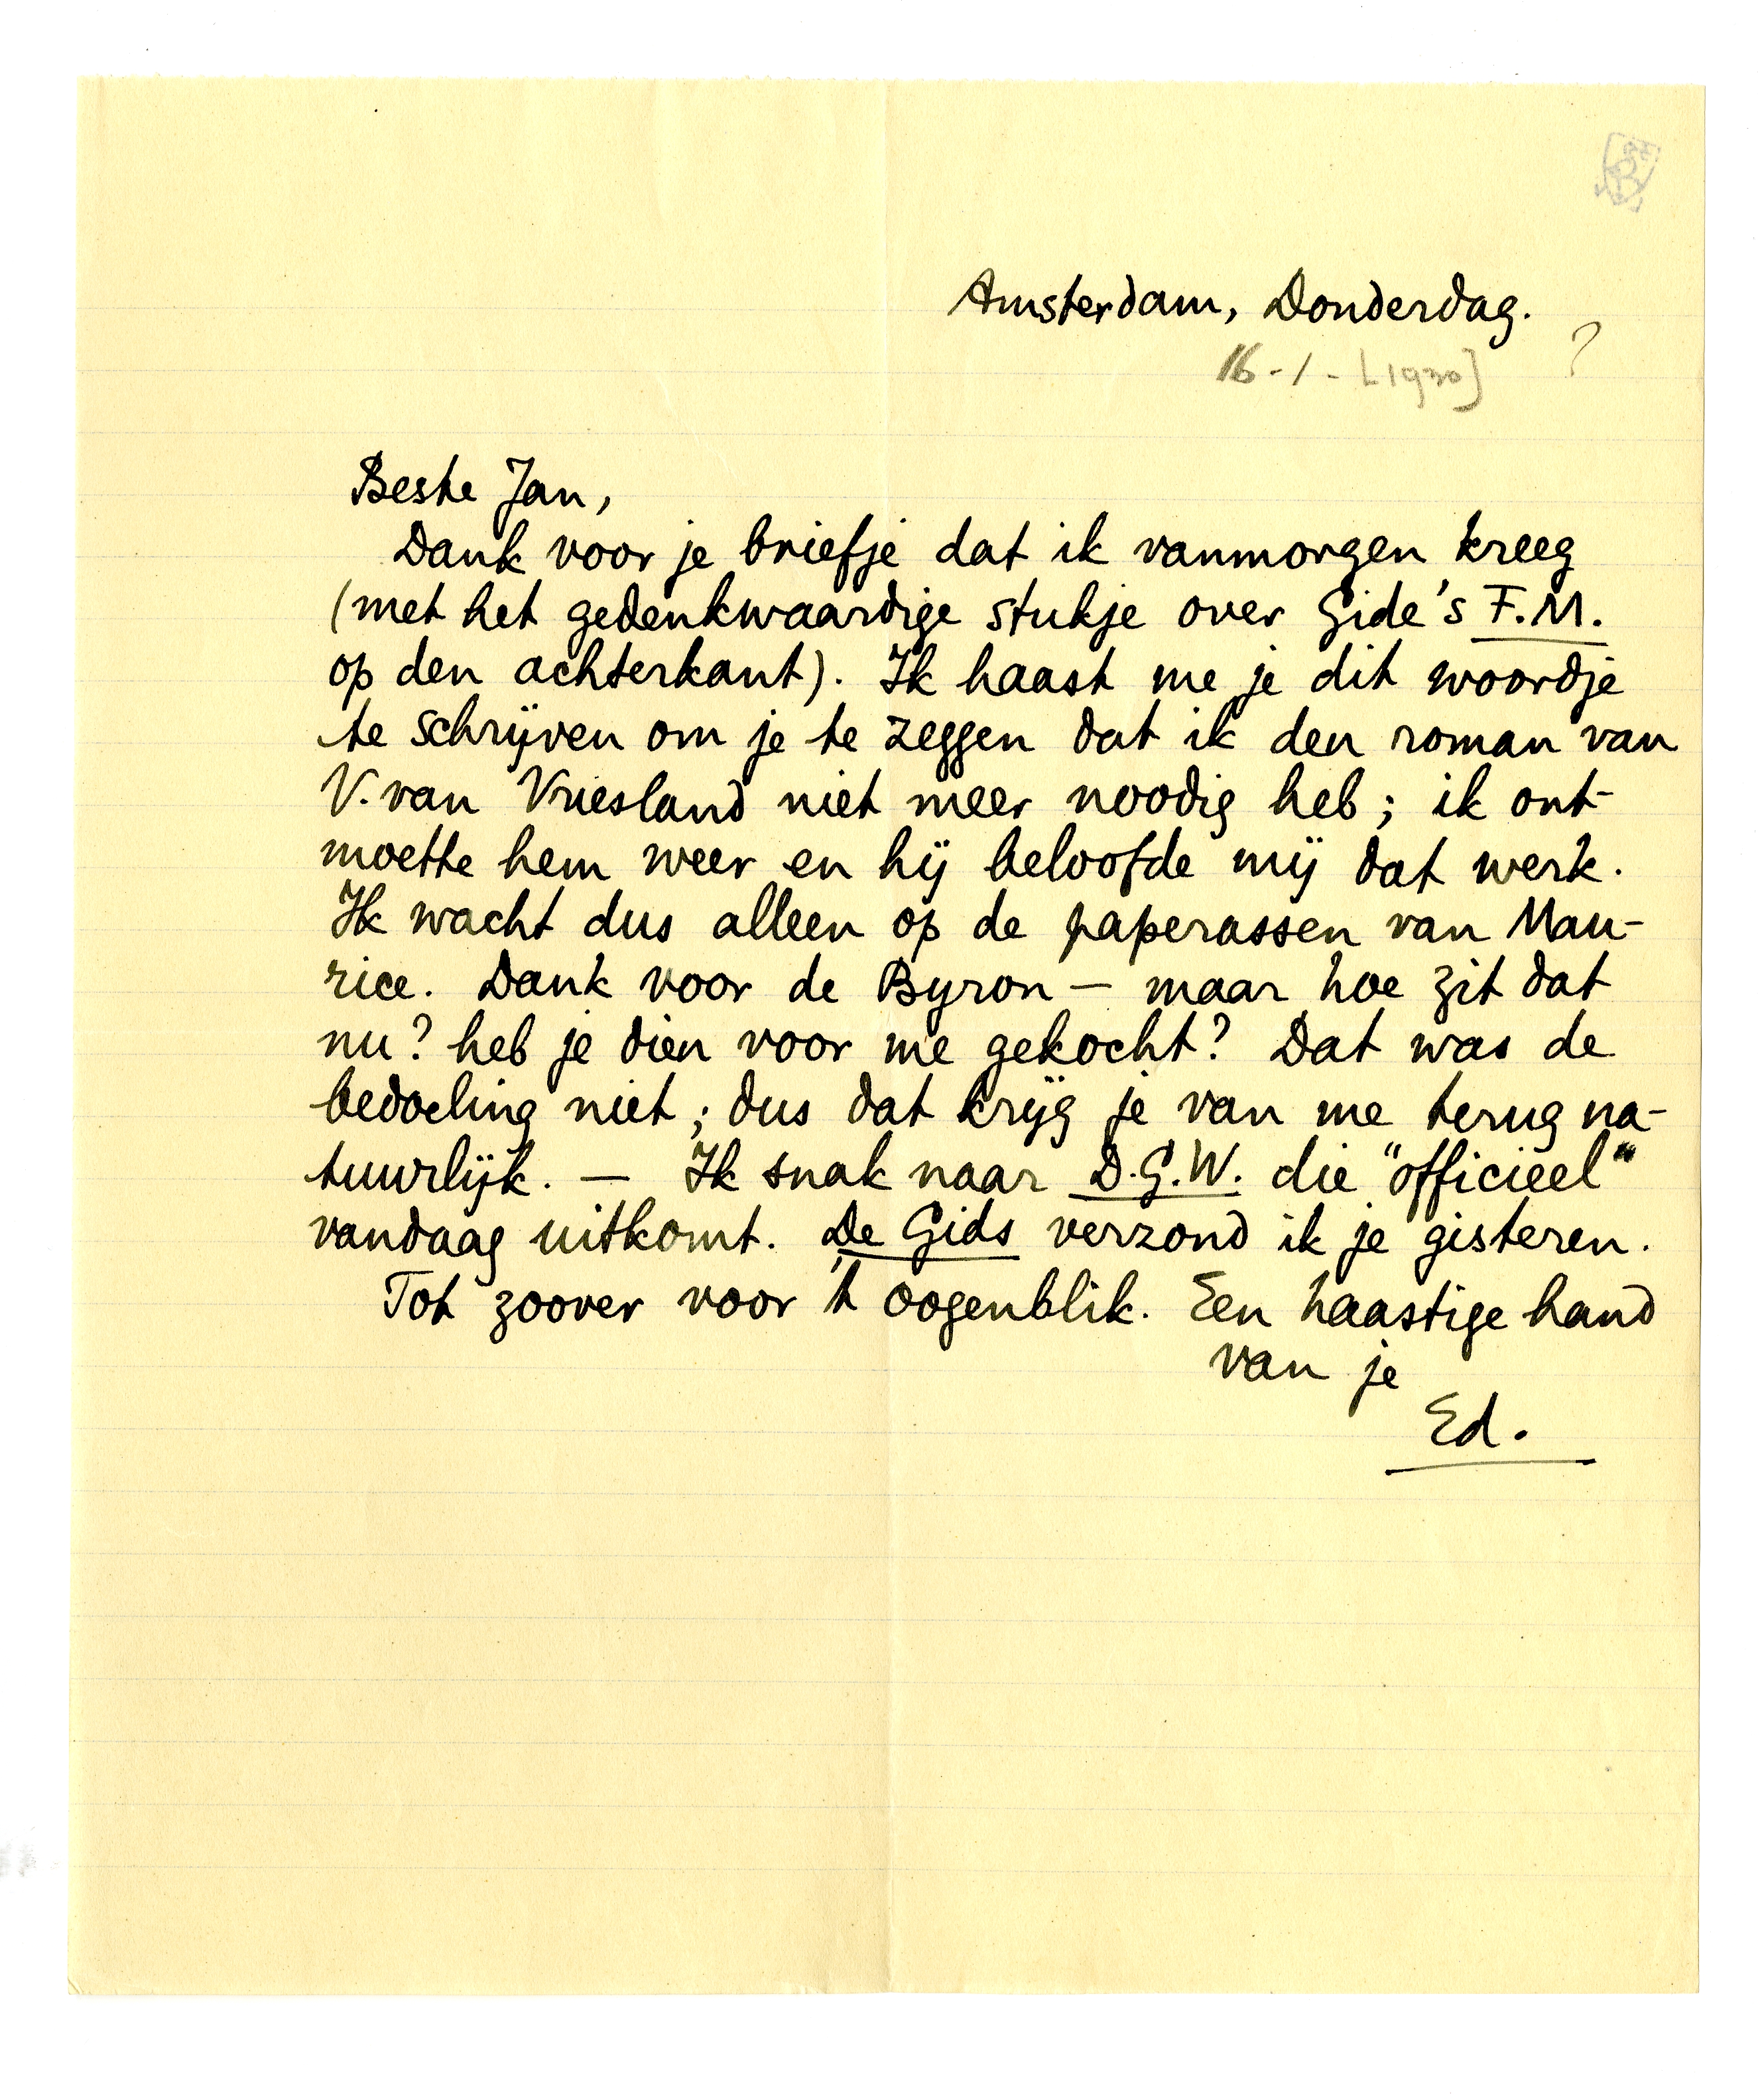 Amsterdam, Donderdag.
16-1-[1930] ?
Beste Jan,
Dank voor je briefje dat ik vanmorgen kreeg
(met het gedenkwaardige stukje over Gide's F.M.
op den achterkant). Ik haast me je dit woordje
te schrijven om je te zeggen dat ik den roman van
V. van Vriesland niet meer noodig heb; ik ont-
moette hem weer en hij beloofde mij dat werk.
Ik wacht dus alleen op de paperassen van Mau-
rice. Dank voor de Byron — maar hoe zit dat
nu? heb je dien voor me gekocht? Dat was de
bedoeling niet; dus dat krijg je van me terug na-
tuurlijk. — Ik snak naar D.G.W. die "officieel"
vandaag uitkomt. De Gids verzond ik je gisteren.
Tot zoover voor 't oogenblik. Een haastige hand
van je
Ed.